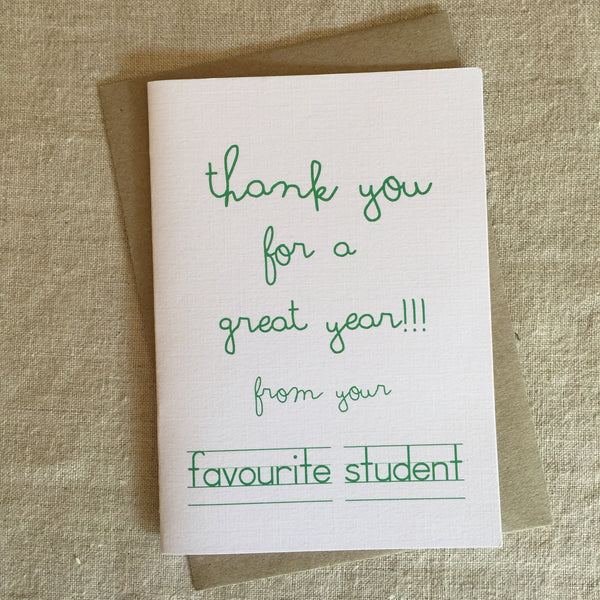 thank you
for a
great year!!!
from your
favourite student